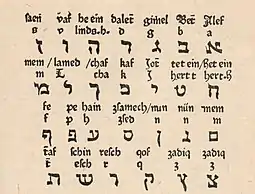 ſaei vaf he ein dalet gimel Bet Alef
s v linds.h. d g b a
ז ו ה ד ג ב א
mem / lamed / chaf kaf Jot tet ein / Het ein
m L cha k J hert t hert.h
מ ל ך כ י ט ח
fe pe hain zsamech / nun nun mem
f p h zſed n n m
ף פ ע ס ן נ ם
taf ſchin reſch qof zadiq zadiq
t eſch r q z z
ת ש ר ק ץ צ